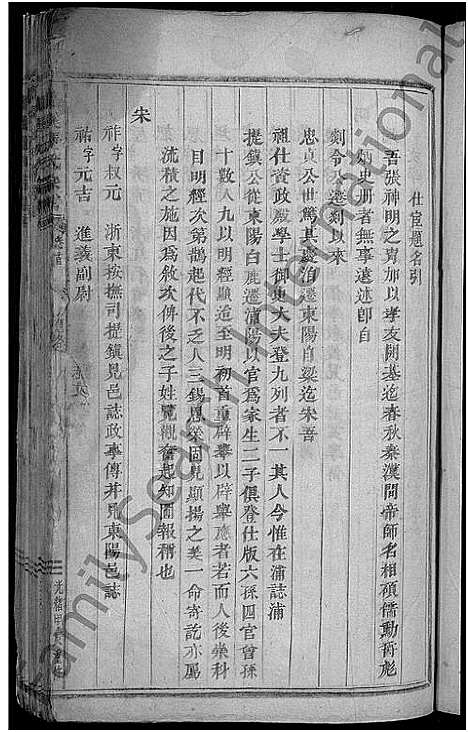 仕宦題名引
吾張神明之冑加以孝友開基迄春秋秦漢間帝師名相碩儒勳胥彪
炳史册者無事遠述卽自
剡令公遷剡以來
忠貞公世篤其慶洎遷東陽自梁迄宋吾
祖仕資政殿學士御史大夫登九列者不一其人今惟在浦誌浦
提鎭公從東陽白鹿遷浦陽以官爲家生二子俱登仕版六孫四官曾孫
十數人九以明經顯迨至明初首重辟舉以辟舉應者若而人後崇科
目明經次第鵲起代不乏人三錫恩榮固見顯揚之美一命寄託亦屬
流積之施因爲敘次俾後之子姓覽觀奮起知圖報稱也
宋
祥字叔元 浙東按撫司提鎭見邑誌政事傳幷見東陽邑誌
祐字元吉 進義副尉
光緒甲
FamilySearch International